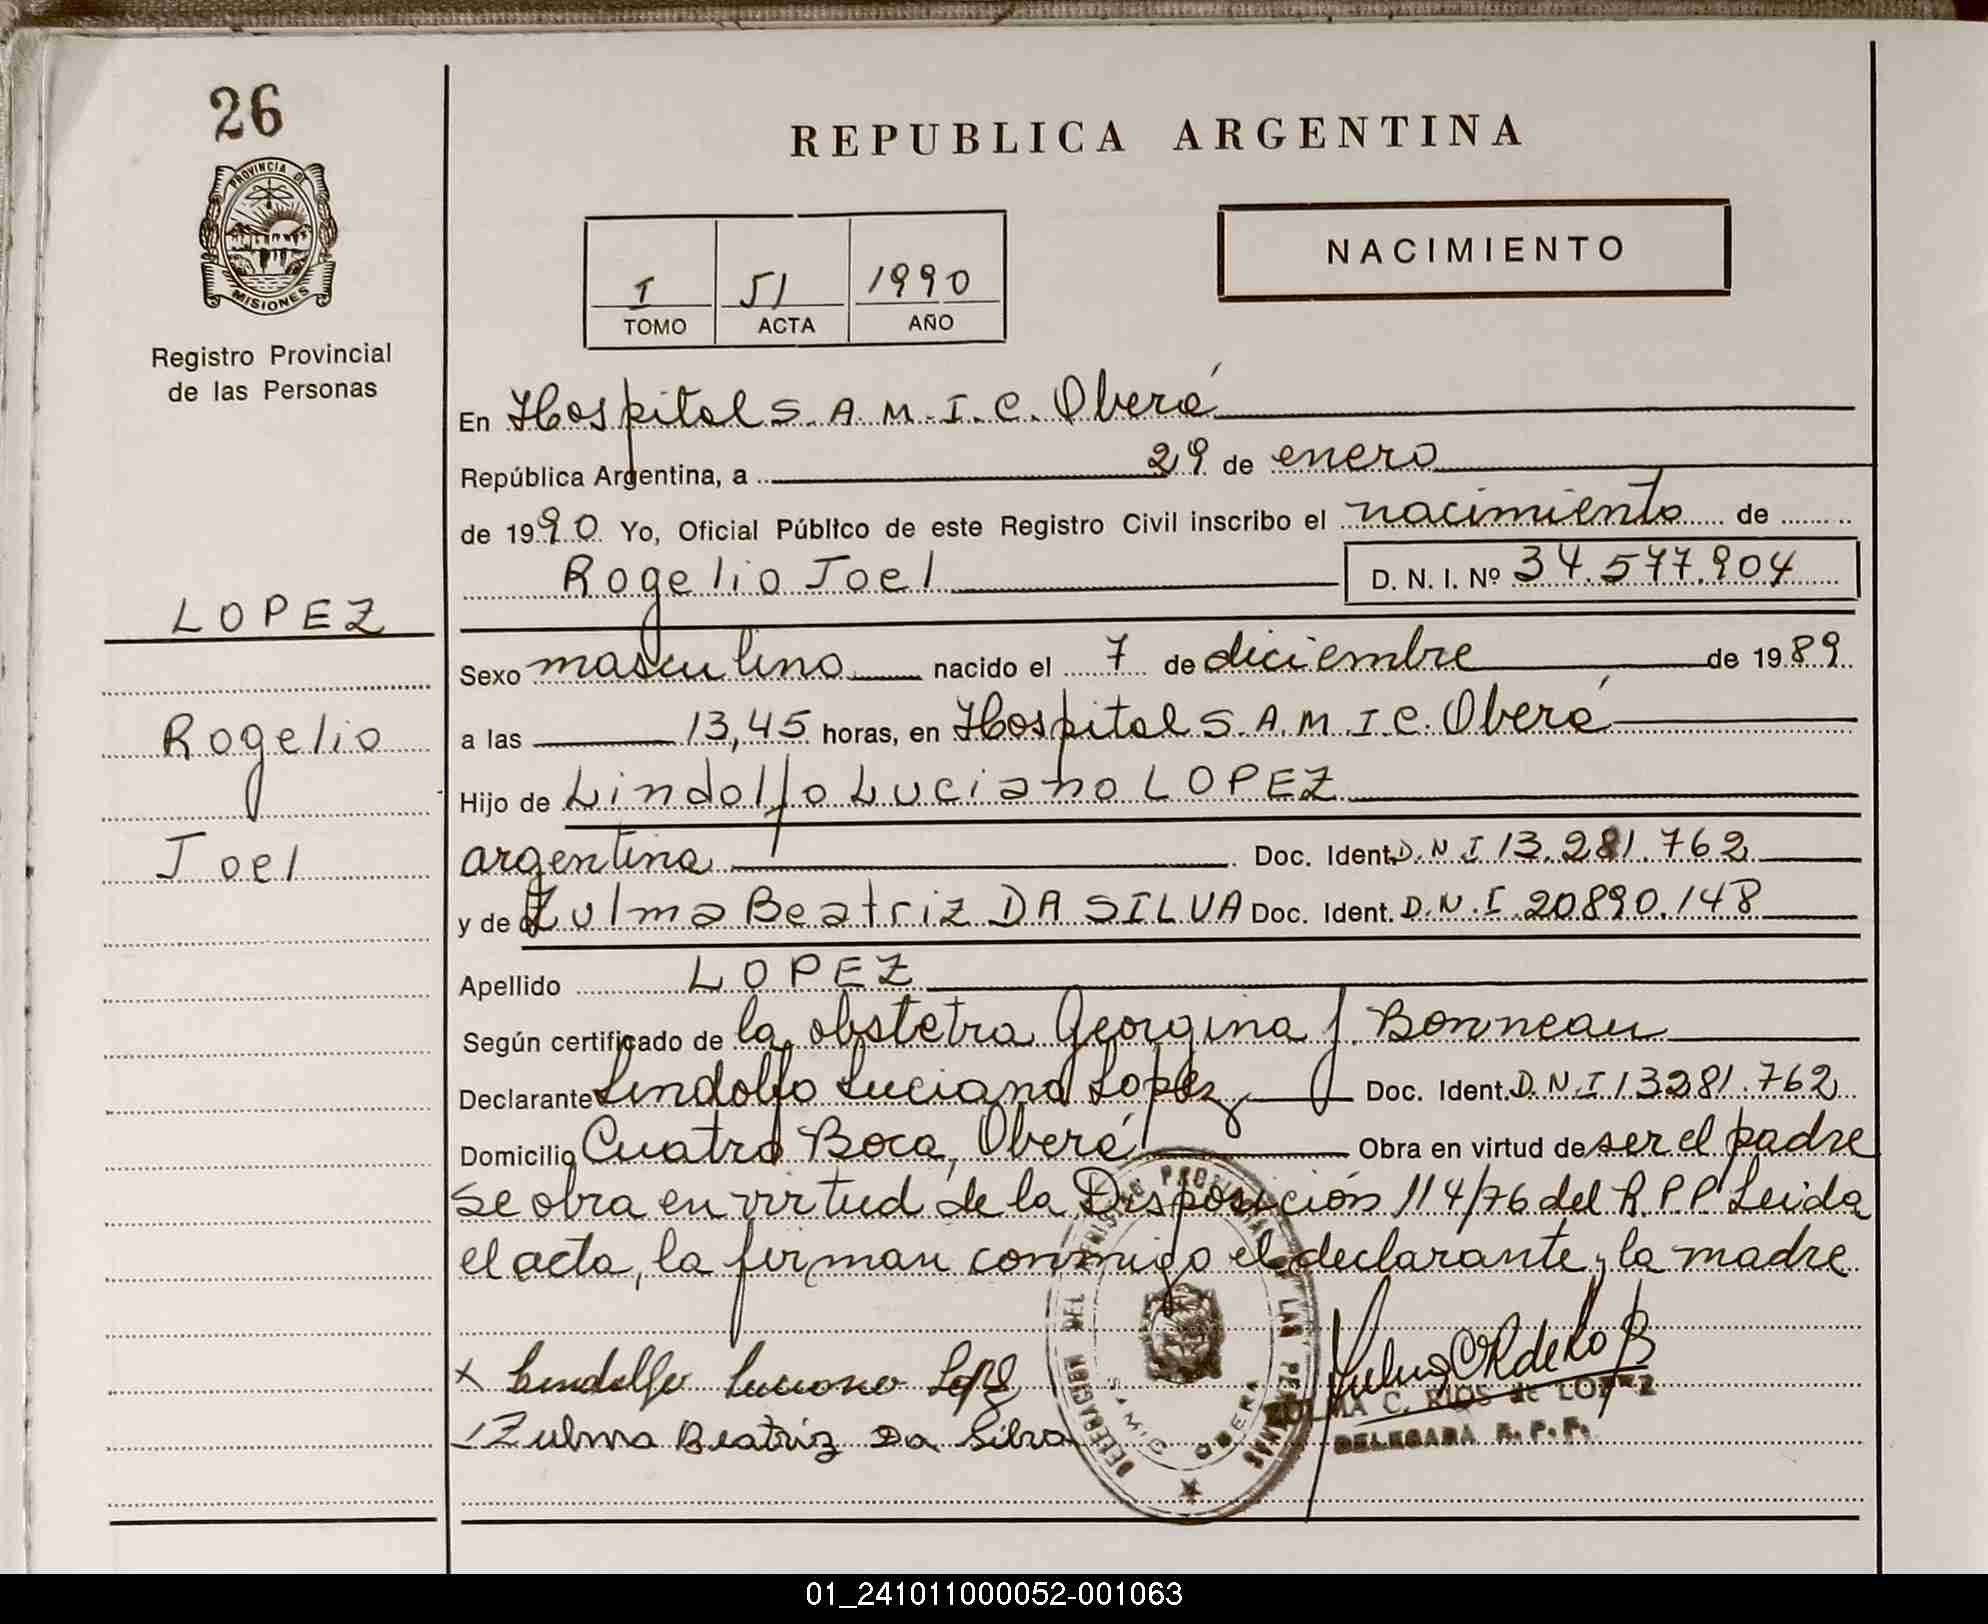 26
PROVINCIA DE
MISIONES
Registro Provincial
de las Personas
LOPEZ
Rogelio
Joel
REPUBLICA ARGENTINA
NACIMIENTO
I 51 1990
TOMO ACTA AÑO
En Hospital S.A.M.I.C. Oberá
República Argentina, a 29 de enero
de 1990 Yo, Oficial Público de este Registro Civil inscribo el nacimiento de
Rogelio Joel D. N. I. Nº 34.577.904
Sexo masculino nacido el 7 de diciembre de 1989
a las 13,45 horas, en Hospital S.A.M.I.C. Oberá
Hijo de Lindolfo Luciano LOPEZ
argentina Doc. Ident. D.N.I 13.281.762
y de Zulma Beatriz DA SILVA Doc. Ident. D.N.I. 20890.148
Apellido LOPEZ
Según certificado de la obstetra Georgina J. Bonneau
Declarante Lindolfo Luciano Lopez Doc. Ident. D.N.I 13281.762
Domicilio Cuatro Boca, Oberá Obra en virtud de ser el padre
se obra en virtud de la Disposición 114/76 del R.P.P. Leida
el acta, la firman conmigo el declarante y la madre
x Lindolfo Luciano Lopez
Zulma Beatriz Da Silva
DELEGACION DEL REGISTRO PROVINCIAL DE LAS PERSONAS
SAMIC OBERA
ZULMA C. RIOS de LOPEZ
DELEGADA R.P.P.
01_241011000052-001063